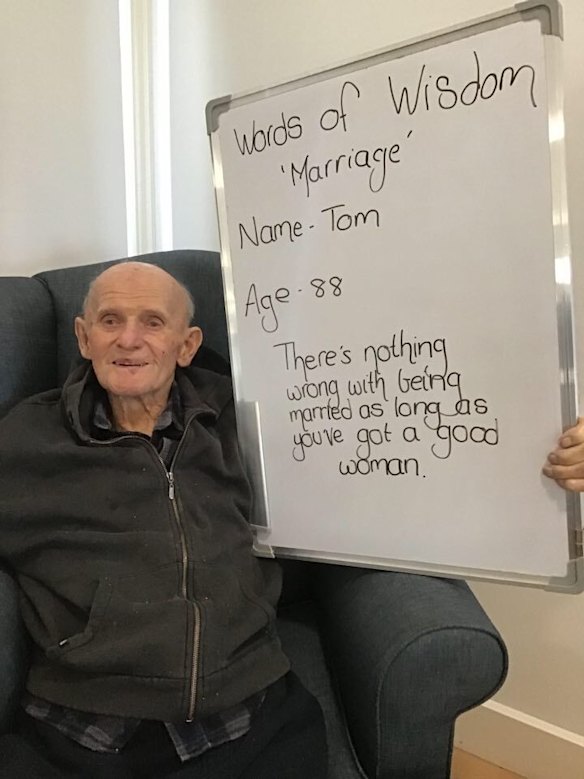 Words of Wisdom
'Marriage'
Name - Tom
Age - 88
There's nothing
wrong with being
married as long as
you've got a good
woman.